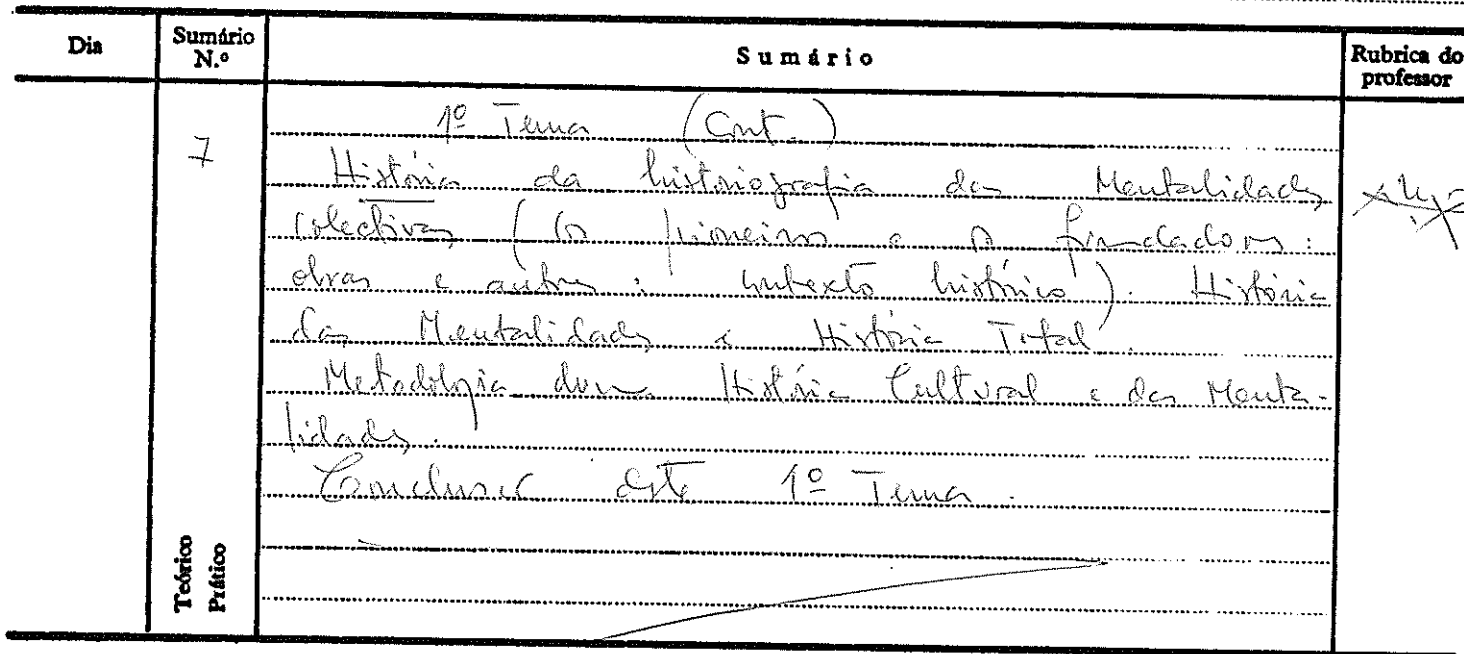 Dia
Sumário N.º
Sumário
Rubrica do professor
7
1º Tema (Cont.)
História da historiografia das Mentalidades
colectivas (os pioneiros e os fundadores:
obras e autores: contexto histórico). História
das Mentalidades e História Total.
Metodologia duma História Cultural e das Menta-
lidades.
Conclusão deste 1º Tema.
Teórico
Prático